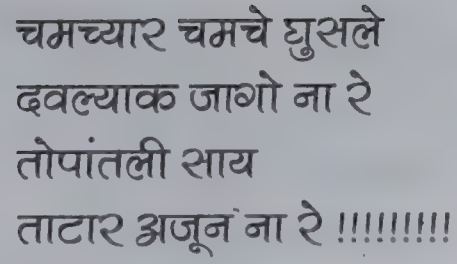 चमच्यार चमचे घुसले
दवल्याक जागो ना रे
तोपांतली साय
ताटार अजून ना रे !!!!!!!!!